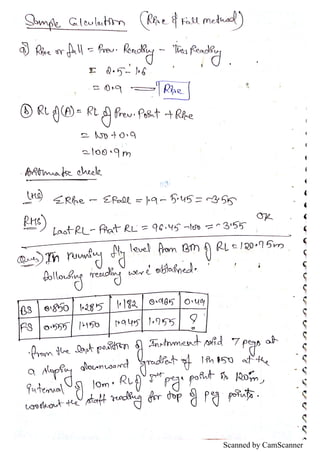 Sample Calculation (Rise & Fall method)
a) Rise or fall = Prev. Reading - This Reading
= 2.5 - 1.6
= 0.9 → Rise
b) RL of (A) = RL of Prev. Point + Rise
= 100 + 0.9
= 100.9 m
Arithmetic check
LHS) ΣRise - ΣFall = 1.9 - 5.45 = -3.55
RHS) Last RL - First RL = 96.45 - 100 = -3.55 OK
Ques) In running fly level from BM of RL = 120.75m
following reading were obtained.
BS 0.850 1.285 1.182 0.985 0.49
FS 0.555 1.150 1.945 1.755 ?
from the last position of Instrument said 7 pegs at
a sloping downward gradient of 1 in 150 at the
interval of 10m. RL of pegs point is 120m,
workout the staff reading for top of peg points.
Scanned by CamScanner